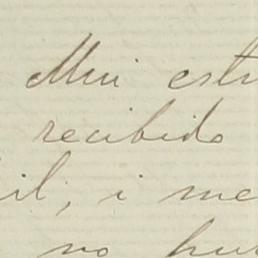 Mui est
recibido
il, i me
no hu